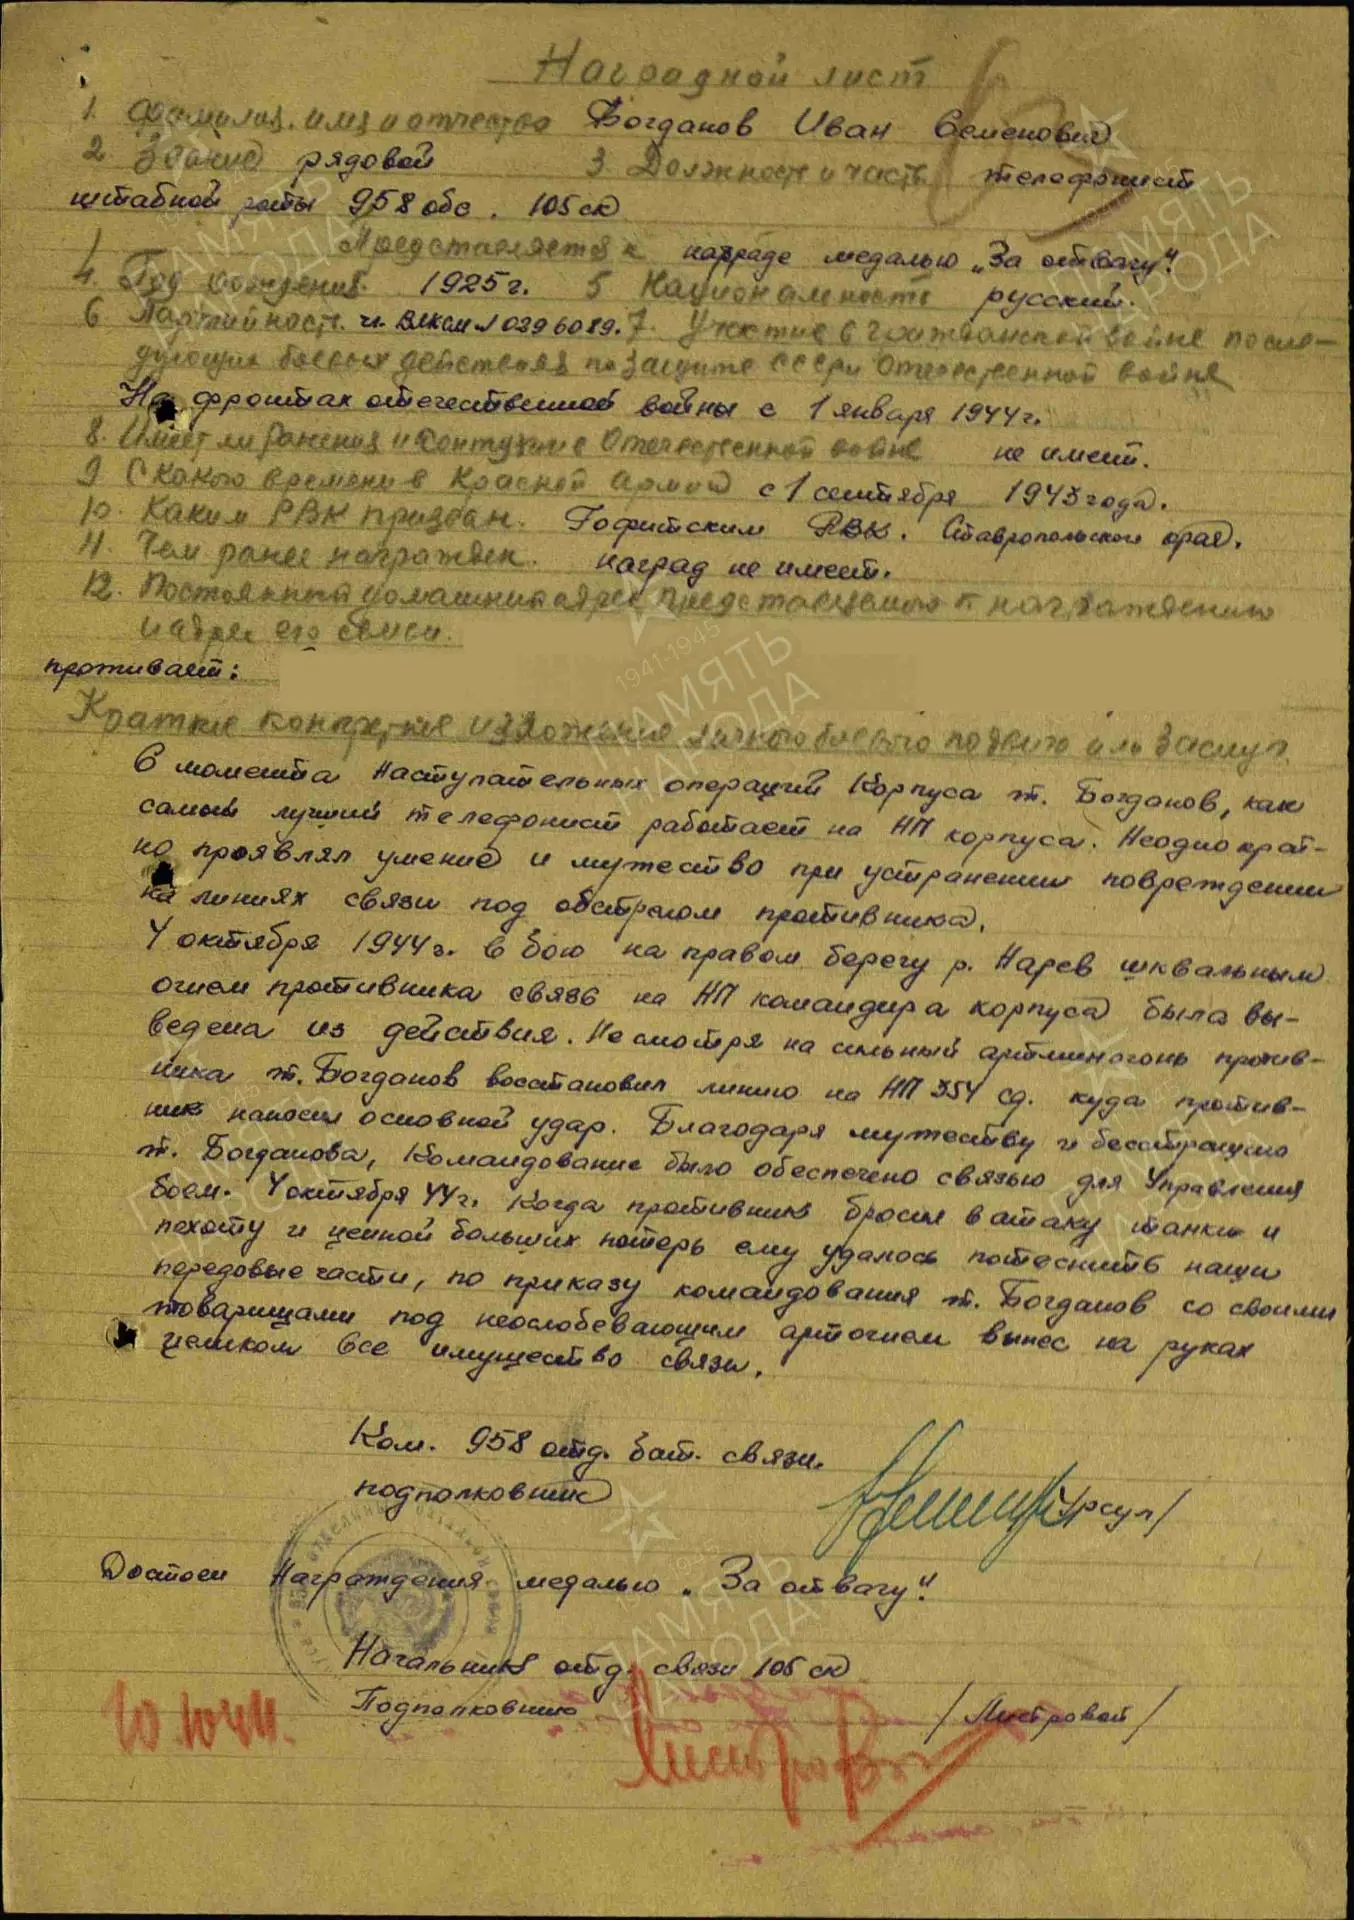 Наградной лист
1. Фамилия, имя и отчество Богданов Иван Семенович
2. Звание рядовой 3. Должность и часть телефонист
штабной роты 958 обс. 105 ск
Представляется к награде медалью „За отвагу".
4. Год рождения. 1925 г. 5 Национальность русский.
6 Партийность. чл. ВЛКСМ 7. Участие в гражданской войне после-
дующих боевых действиях по защите СССР и отечественной войне
На фронтах отечественной войны с 1 января 1944 г.
8. Имеет ли ранения и контузии в Отечественной войне не имеет.
9 С какого времени в Красной Армии с 1 сентября 1943 года.
10. Каким РВК призван. РВК. Ставропольского края.
11. Чем ранее награжден. наград не имеет.
12. Постоянный домашний адрес представляемого к награждению
и адрес его семьи.
проживает:
Краткое конкретное изложение личного боевого подвига или заслуг
С момента наступательных операций Корпуса т. Богданов, как
самый лучший телефонист работает на НП корпуса. Неоднократ-
но проявлял умение и мужество при устранении повреждении
на линиях связи под обстрелом противника.
4 октября 1944 г. в бою на правом берегу р. Нарев шквальным
огнем противника связь на НП командира корпуса была вы-
ведена из действия. Несмотря на сильный артминогонь против-
ника т. Богданов восстановил линию на НП 354 сд. куда против-
ник наносил основной удар. Благодаря мужеству и бесстрашию
т. Богданова, Командование было обеспечено связью для Управления
боем. 4 октября 44 г. Когда противник бросил в атаку танки и
пехоту и ценой больших потерь ему удалось потеснить наши
передовые части, по приказу командования т. Богданов со своими
товарищами под неослобевающим артогнем вынес на руках
целиком все имущество связи.
Ком. 958 отд. бат. связи.
подполковник /Урсул/
Достоен Награждения медалью „За отвагу".
Начальник отд. связи 105 ск
Подполковник /Листровой/
10.10.44.
ПАМЯТЬ НАРОДА
1941-1945